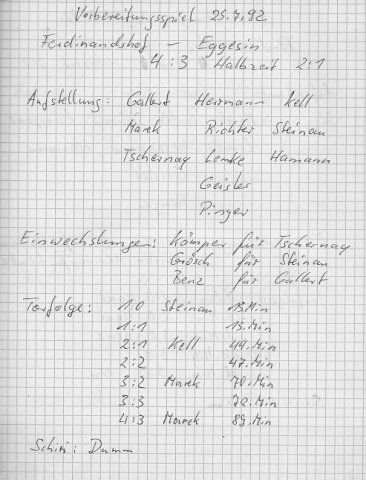 Vorbereitungsspiel 25.7.92
Ferdinandshof - Eggesin
4:3 Halbzeit 2:1
Aufstellung: Gallert Herrmann Kell
Marek Richter Steinau
Tschernay Lemke Hamann
Geisler
Pinger
Einwechslungen: Kämper für Tschernay
Grösch für Steinau
Benz für Gallert
Torfolge: 1:0 Steinau 13.Min
1:1 13.Min
2:1 Kell 44.Min
2:2 47.Min
3:2 Marek 70.Min
3:3 72.Min
4:3 Marek 89.Min
Schiri: Dumm